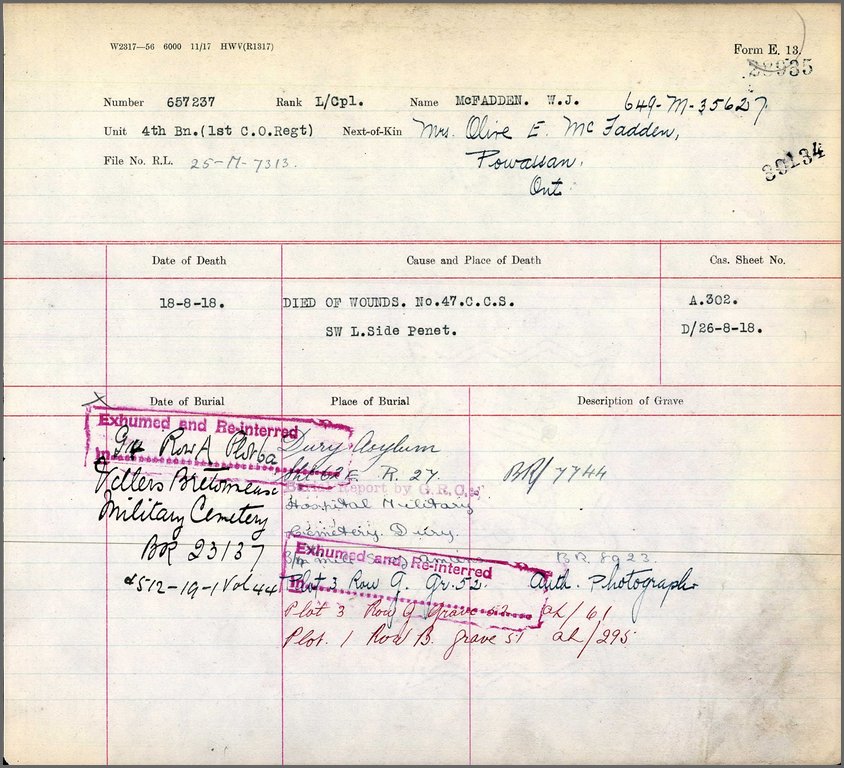 W2317—56 6000 11/17 HWV(R1317)
Form E. 13.
Number 657237 Rank L/Cpl. Name McFADDEN. W.J. 649-M-35627
Unit 4th Bn.(1st C.O.Regt) Next-of-Kin Mrs. Olive E. McFadden,
File No. R.L. 25-M-7313. Powassan.
Ont
30134
Date of Death Cause and Place of Death Cas. Sheet No.
18-8-18. DIED OF WOUNDS. No.47.C.C.S. A.302.
SW L.Side Penet. D/26-8-18.
Date of Burial Place of Burial Description of Grave
Exhumed and Re-interred
in
Row A Plot 6a
Villers Bretonneux
Military Cemetery
BR 23137
Vol 44
Dury Asylum
62E R. 27. BR/7744
Burial Report by G.R.C.
Hospital Military
Cemetery. Dury.
BR 8923
Exhumed and Re-interred
in
Plot 3 Row G. Gr. 52. Auth. Photograph
Plot 3 Row G Grave 52 ah/61
Plot. 1 Row B. grave 51 ah/295